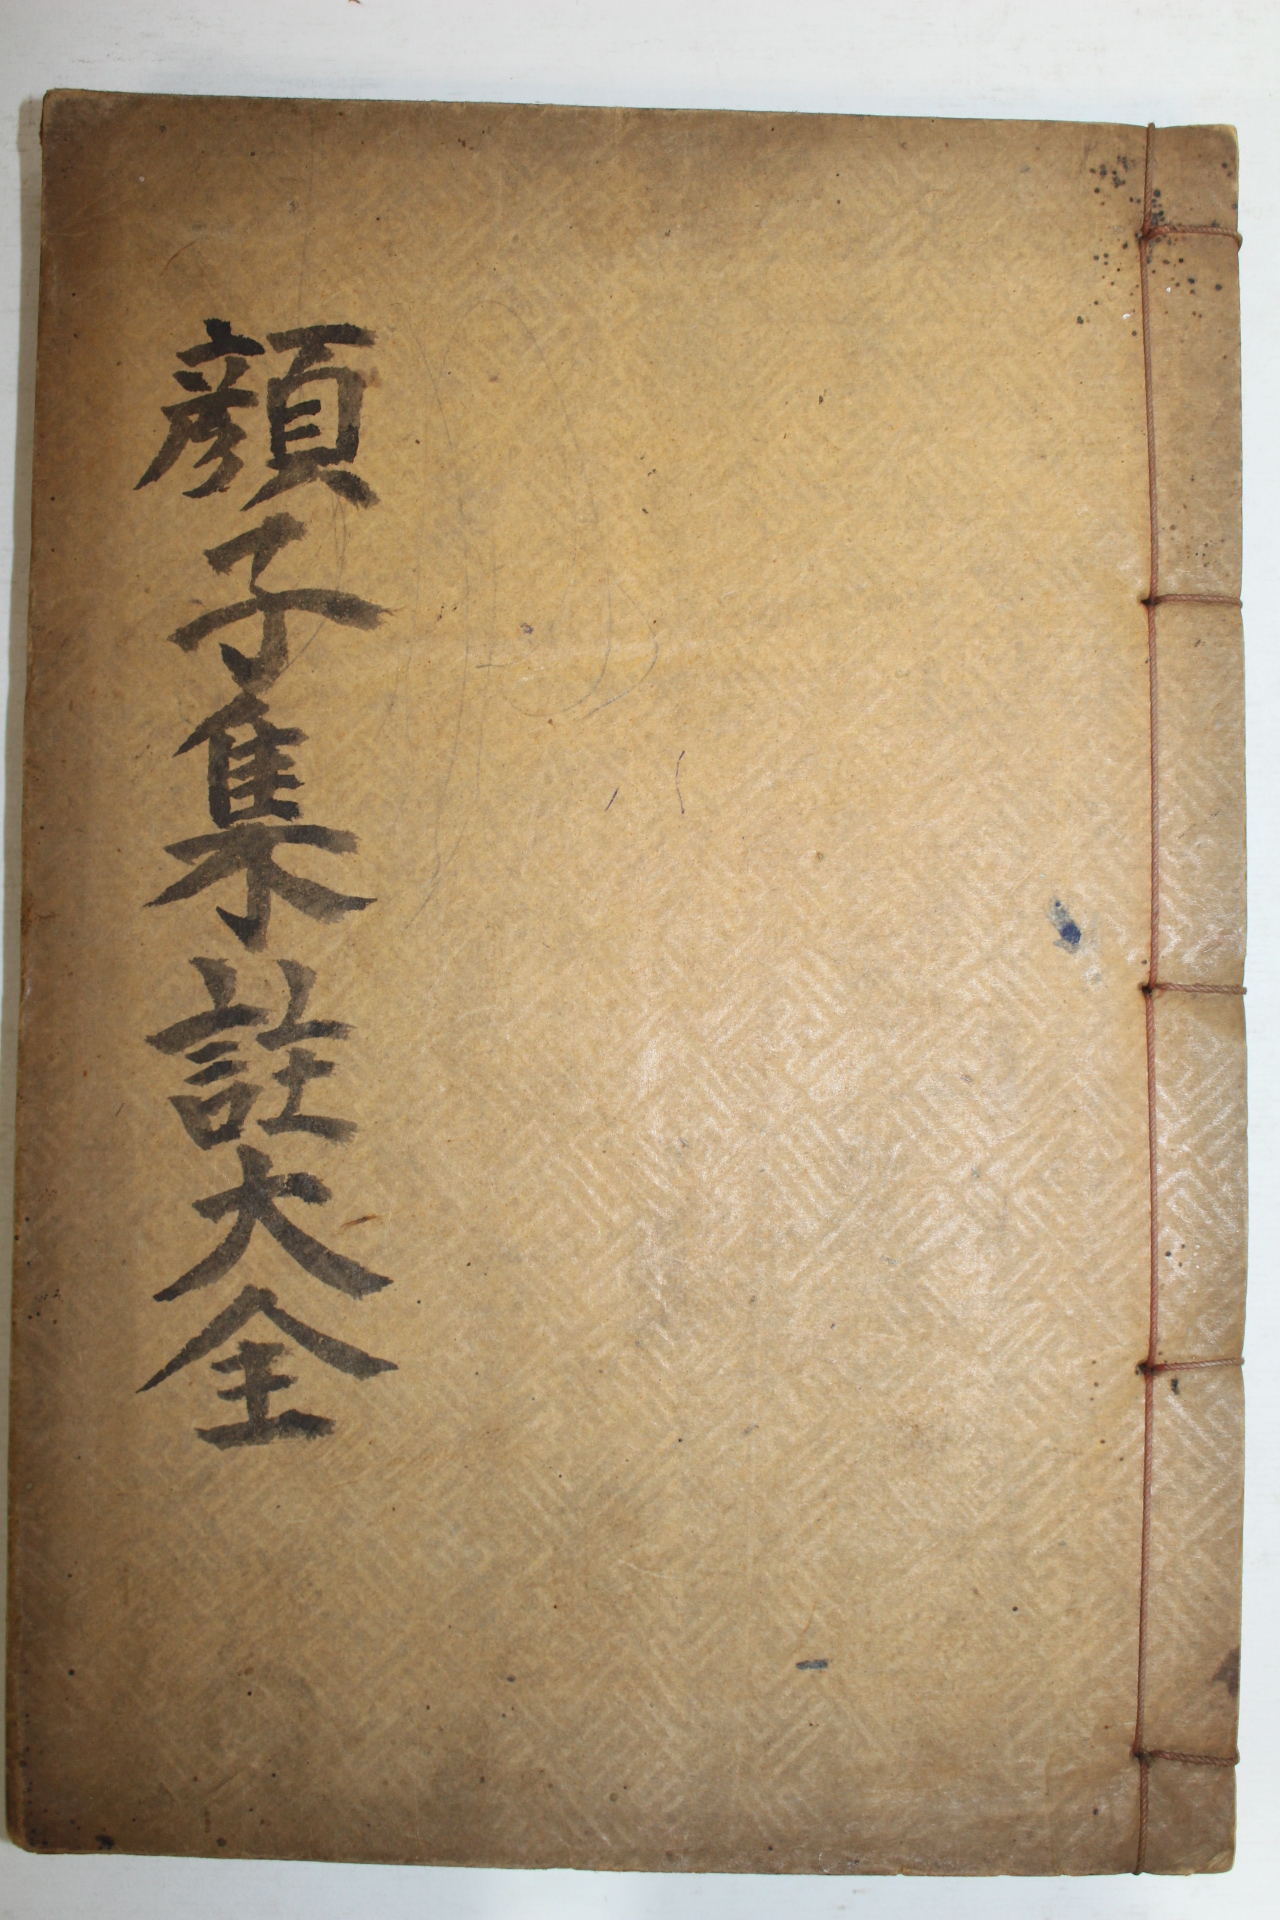 顔子集註大全